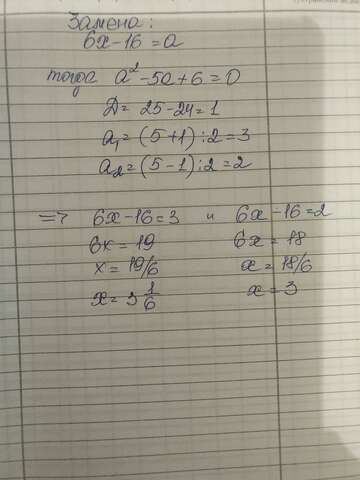 Замена:
6x-16=a
тогда a²-5a+6=0
Д=25-24=1
a₁=(5+1):2=3
a₂=(5-1):2=2
=> 6x-16=3 и 6x-16=2
6x=19 6x=18
x=19/6 x=18/6
x=3 1/6 x=3